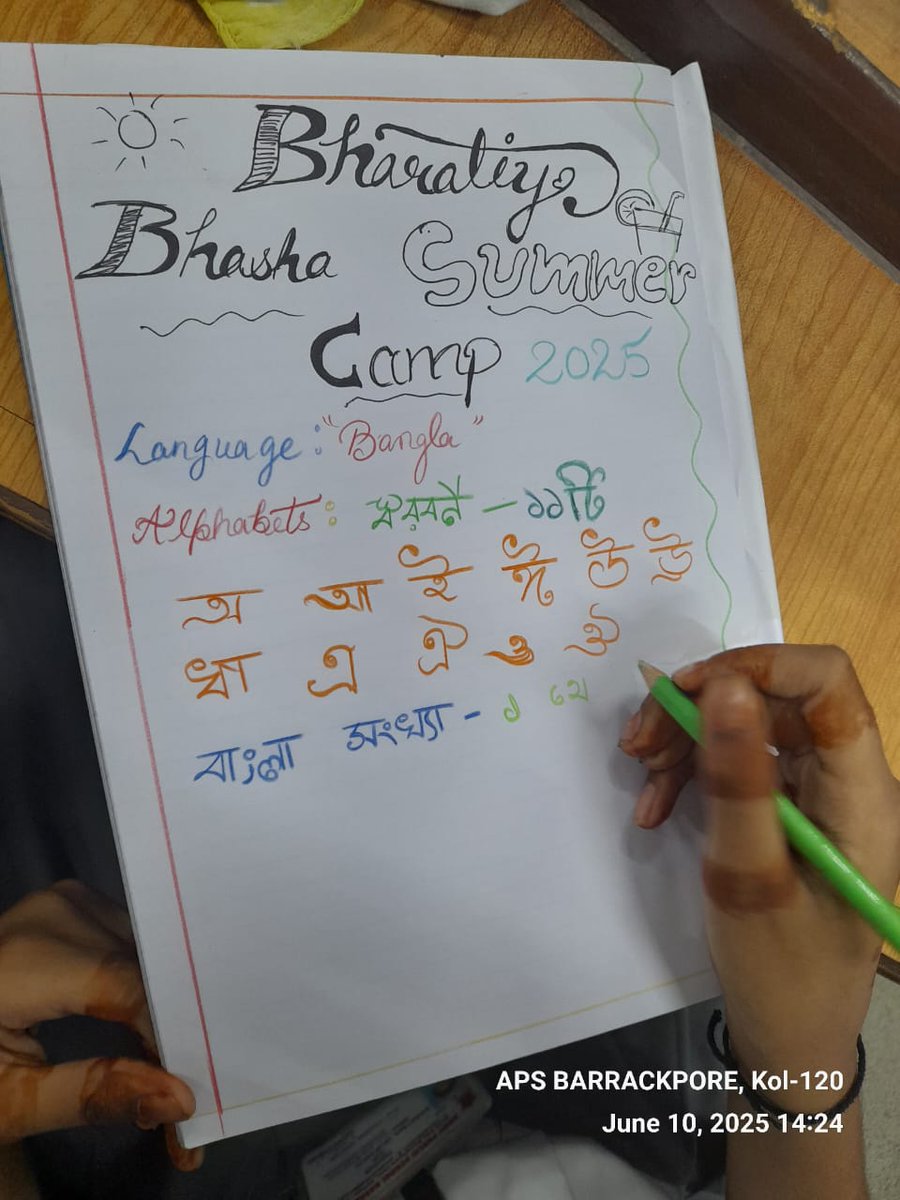 Bharatiya
Bhasha Summer
Camp 2025
Language: "Bangla"
Alphabets: স্বরবর্ন – ১১টি
অ আ ই ঈ উ ঊ
ঋ এ ঐ ও ঔ
বাংলা সংখ্যা - ১ থে
APS BARRACKPORE, Kol-120
June 10, 2025 14:24